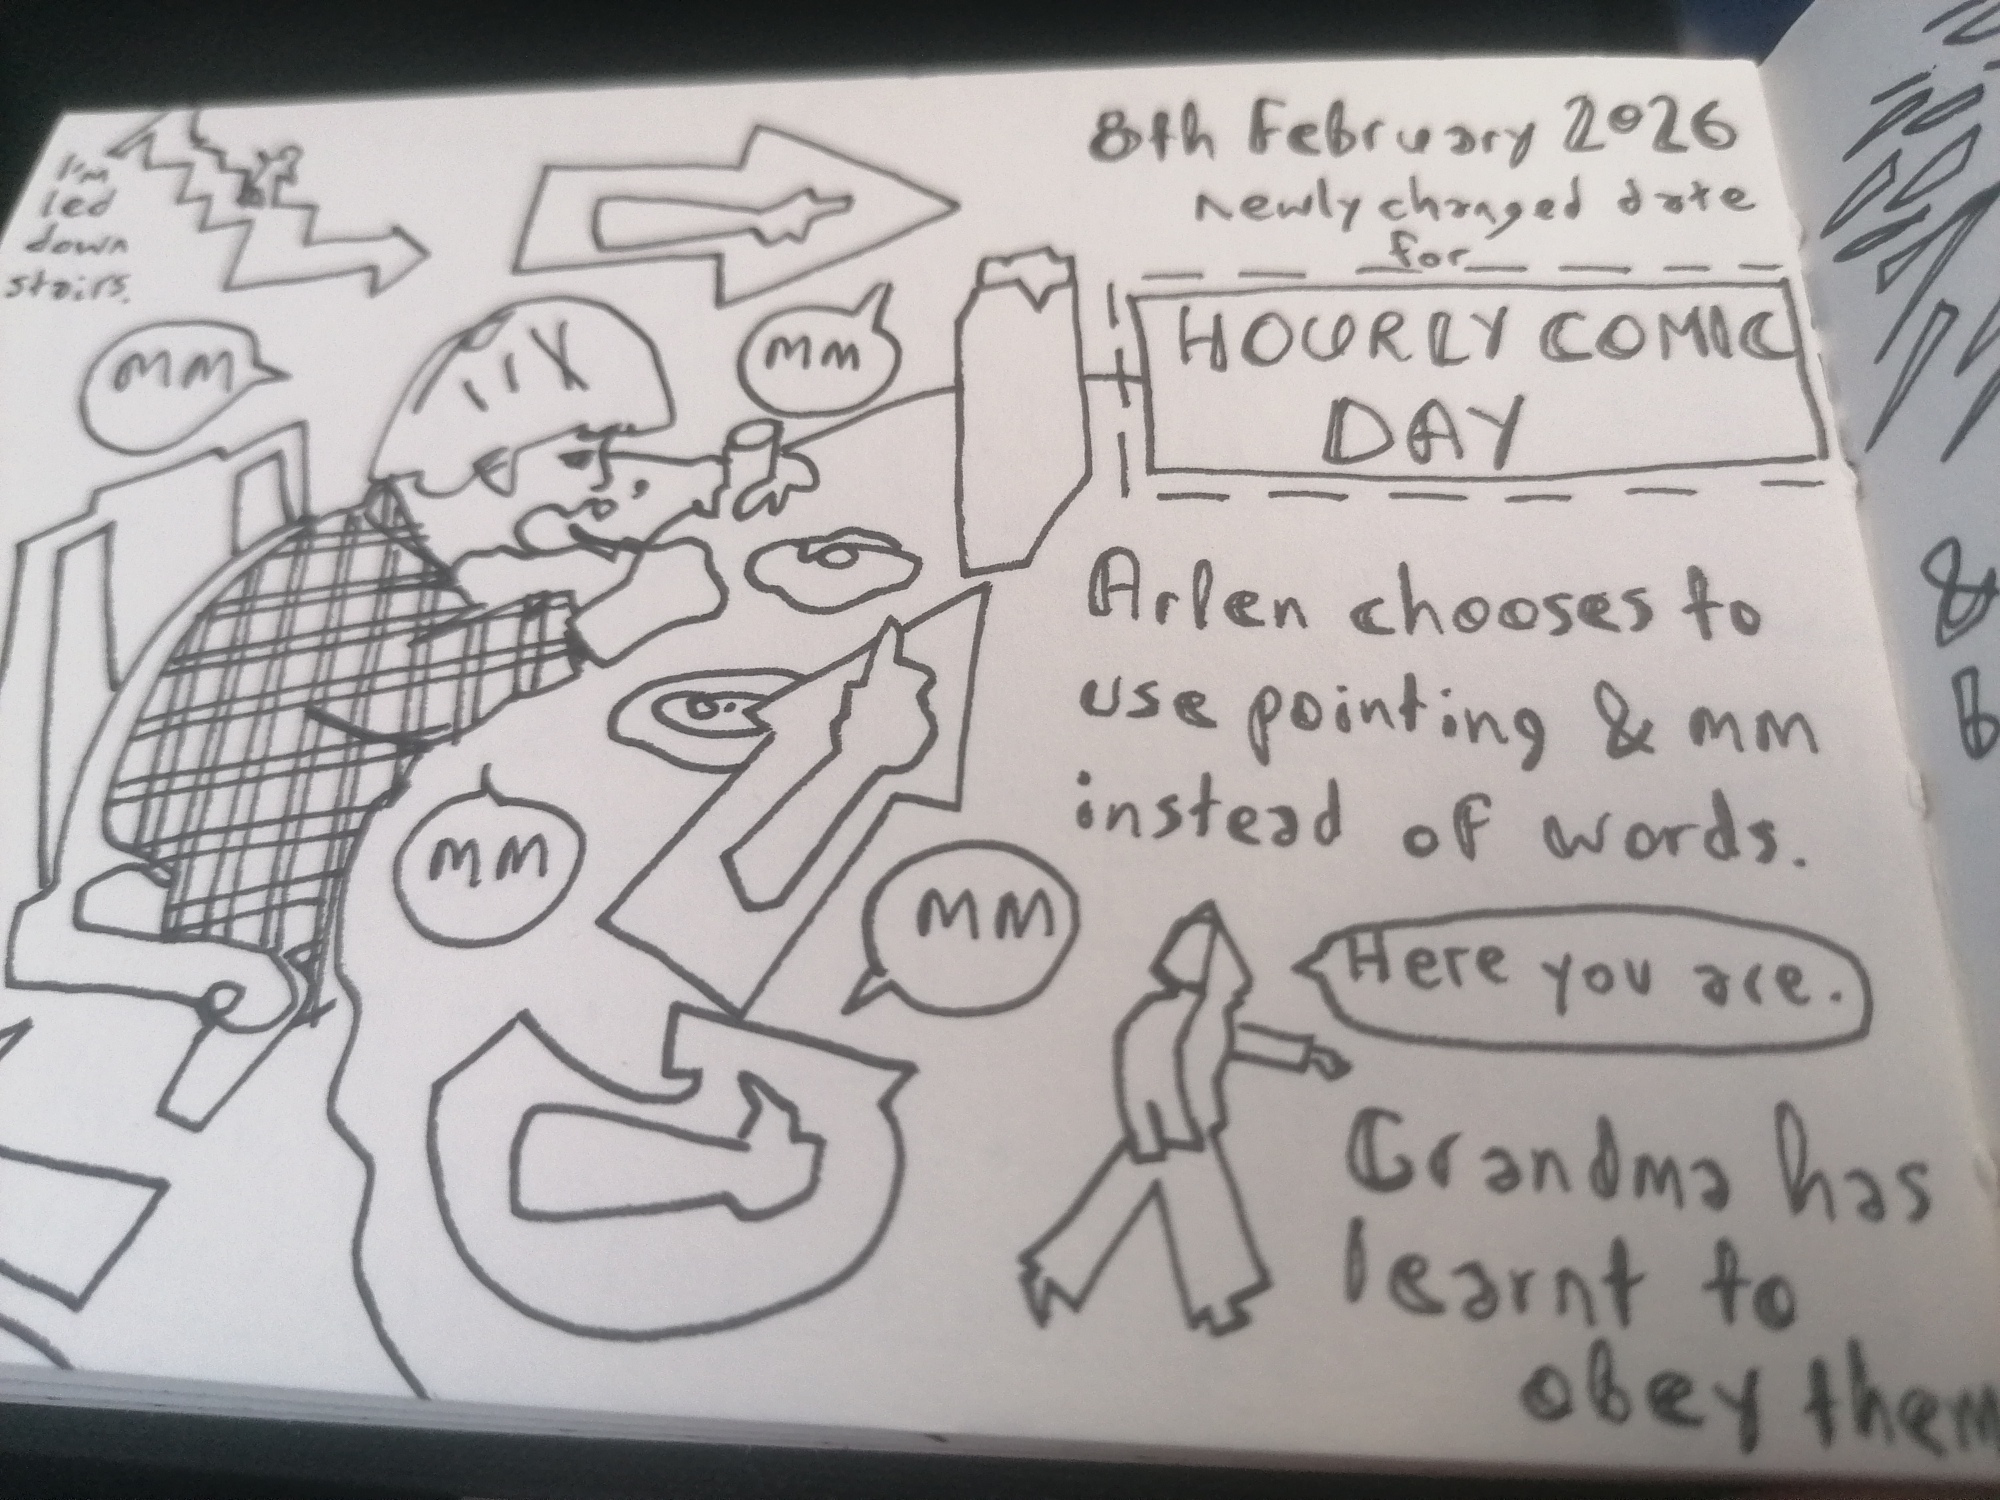 8th February 2026
newly changed date
for
HOURLY COMIC
DAY
I'm
led
down
stairs.
MM
MM
Arlen chooses to
use pointing & mm
instead of words.
MM
MM
Here you are.
Grandma has
learnt to
obey them
&